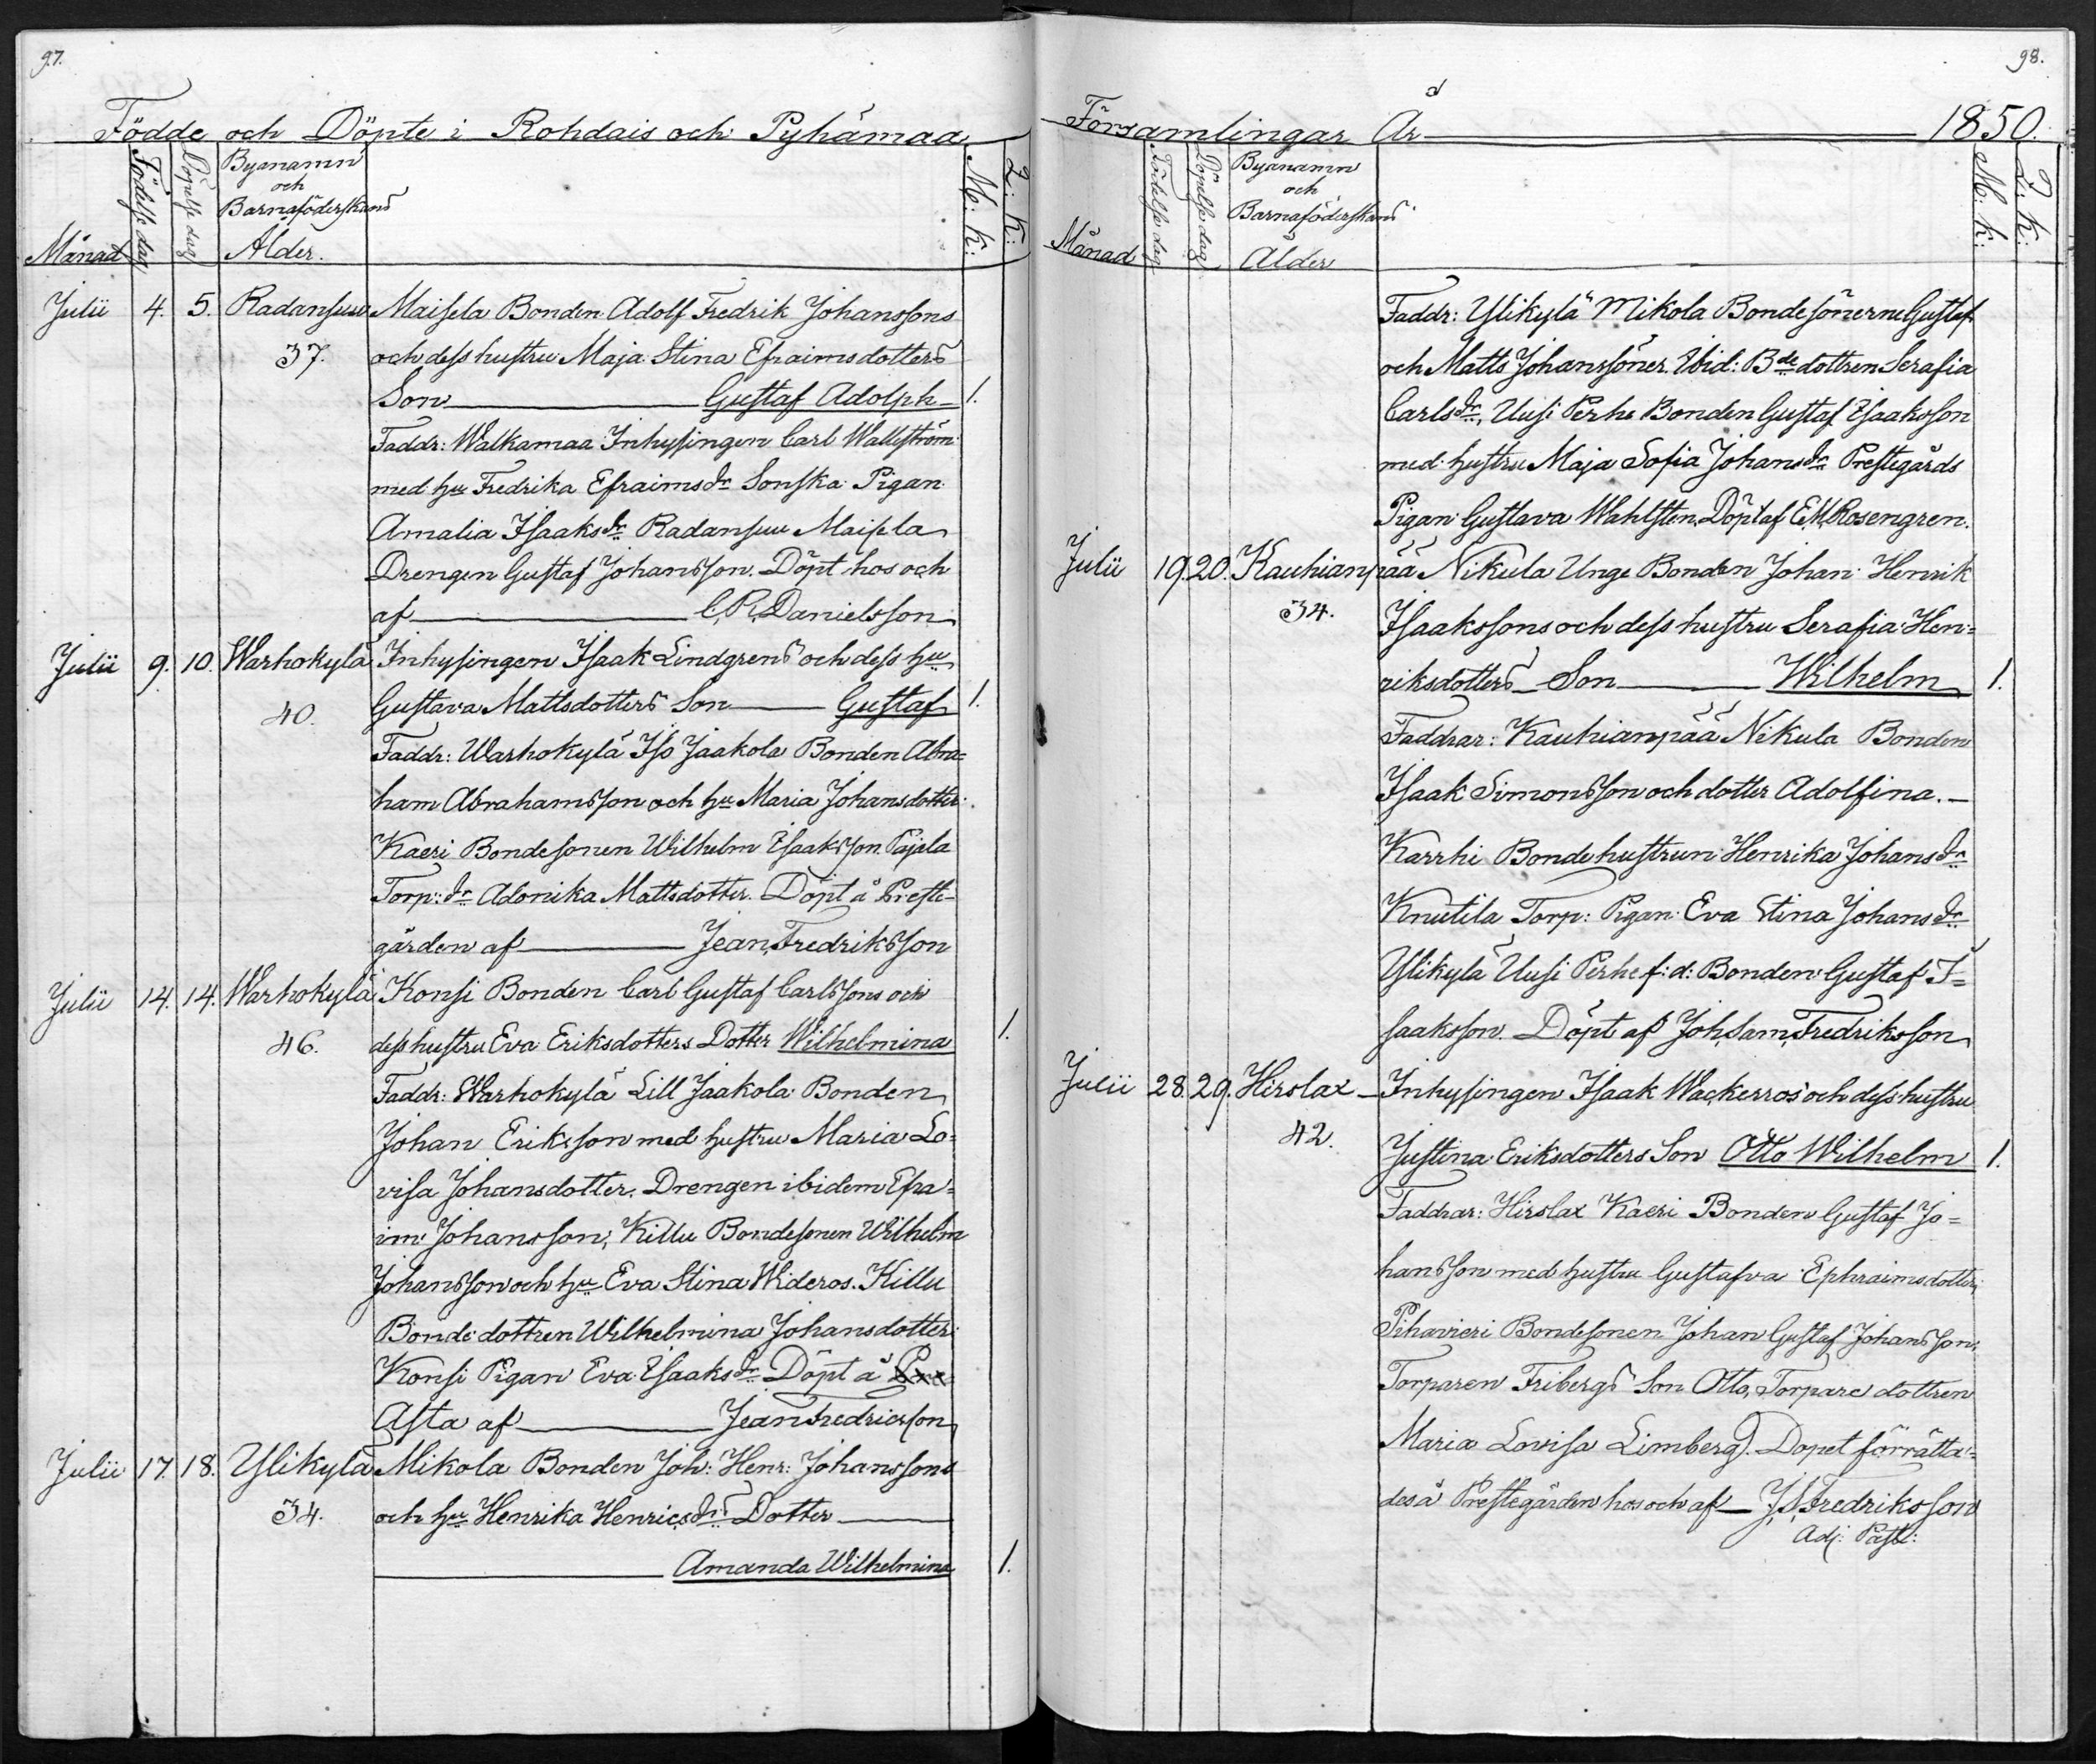 97.
Födde och Döpte i Rohdais och Pyhämaa
Månad
Födelse dag
Döpelse dag
Byanamn
och
Barnaföderskans
Ålder.
M: K:
Q: K:
Julii 4. 5. Radansuu Maisela Bonden Adolf Fredrik Johanssons
37. och dess hustru Maja Stina Efraimsdotters
Son Gustaf Adolph 1.
Faddr: Walkamaa Inhysingen Carl Wallström
med hu Fredrika Efraimsdr Sonska Pigan
Amalia Isaaksdr Radansuu Maisela
Drengen Gustaf Johansson. Döpt hos och
af C. R. Danielsson
Julii 9. 10. Warhokylä Inhysingen Isaak Lindgrens och dess hu
40. Gustava Mattsdotters Son Gustaf 1.
Faddr: Warhokylä Iso Jaakola Bonden Abra=
ham Abrahamsson och hu Maria Johansdotter.
Kaeri Bondesonen Wilhelm Isaksson. Pajala
Torp: dr Adonika Mattsdotter. Döpt å Preste-
gården af Jean Fredriksson
Julii 14. 14. Warhokylä Konsi Bonden Carl Gustaf Carlssons och
46. dess hustru Eva Eriksdotters Dotter Wilhelmina 1.
Faddr: Warhokylä Lill Jaakola Bonden
Johan Eriksson med hustru Maria Lo=
visa Johansdotter, Drengen ibidem Efra=
im Johansson, Killu Bondesonen Wilhelm
Johansson och hu Eva Stina Wideros. Killu
Bonde dottren Wilhelmina Johansdotter
Konsi Pigan Eva Isaaksdr Döpt å
Asta af Jean Fredricsson
Julii 17. 18. Ylikylä Mikola Bonden Joh: Henr: Johanssons
34. och hu Henrika Henricsdrs Dotter
Amanda Wilhelmina 1.
98.
Församlingar År 1850.
Månad
Födelse dag
Döpelse dag
Byanamn
och
Barnaföderskans
Ålder
M: K:
Q: K:
Faddr: Ylikylä Mikola Bondesönerne Gustaf
och Matts Johanssöner. Ibid: Bde dottren Serafia
Carlsdr, Uusi Perhe Bonden Gustaf Isaaksson
med hustru Maja Sofia Johansdr Prestegårds
Pigan Gustava Wahlsten. Döpt af E. W. Rosengren.
Julii 19 20. Kauhianpää Nikula Unge Bonden Johan Henrik
34. Isaakssons och dess hustru Serafia Hen=
riksdotters Son Wilhelm 1.
Faddrar: Kauhianpää Nikula Bonden
Isaak Simonsson och dotter Adolfina.
Karrhi Bondehustrun Henrika Johansdr
Knutila Torp: Pigan Eva Stina Johansdr
Ylikylä Uusi Perhe f:d: Bonden Gustaf I=
saaksson. Döpt af Joh. Sam. Fredriksson
Julii 28. 29. Hirslax Inhysingen Isaak Wackerros och dess hustru
42. Justina Eriksdotters Son Otto Wilhelm 1.
Faddrar: Hirslax Kaeri Bonden Gustaf Jo=
hansson med hustru Gustafva Ephraimsdotter,
Pihavieri Bondesonen Johan Gustaf Johansson,
Torparen Fribergs Son Otto, Torpare dottren
Maria Lovisa Limberg. Dopet förrätta=
des å Prestegården hos och af J. S. Fredriksson
Adj: Past: